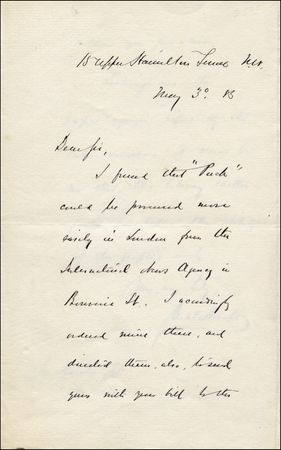 15 Upper Hamilton Terrace N.W.
May 3° 83
Dear Sir,
I found that "Puck"
could be procured more
easily in London from the
International News Agency in
Bouverie St. I accordingly
ordered mine there, and
directed them, also, to send
yours with your bill to the